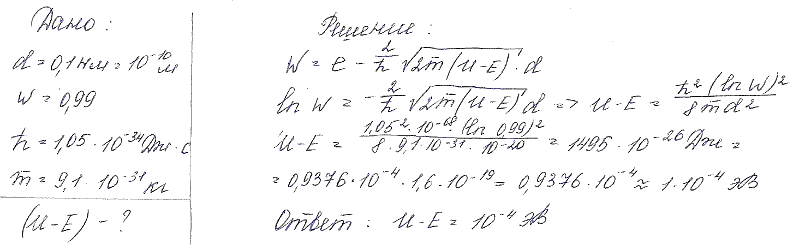 Дано :
d = 0,1 нм = 10⁻¹⁰ м
W = 0,99
ħ = 1,05 · 10⁻³⁴ Дж · с
m = 9,1 · 10⁻³¹ кг
(U-E) - ?
Решение :
W = e - 2/ħ √2m(U-E) · d
ln W = - 2/ħ √2m(U-E) d => U-E = ħ² (ln W)² / 8md²
U-E = 1,05² · 10⁻⁶⁸ (ln 0,99)² / 8 · 9,1 · 10⁻³¹ · 10⁻²⁰ = 1495 · 10⁻²⁶ Дж =
= 0,9376 · 10⁻⁴ · 1,6 · 10⁻¹⁹ = 0,9376 · 10⁻⁴ ≈ 1 · 10⁻⁴ эВ
Ответ : U-E = 10⁻⁴ эВ